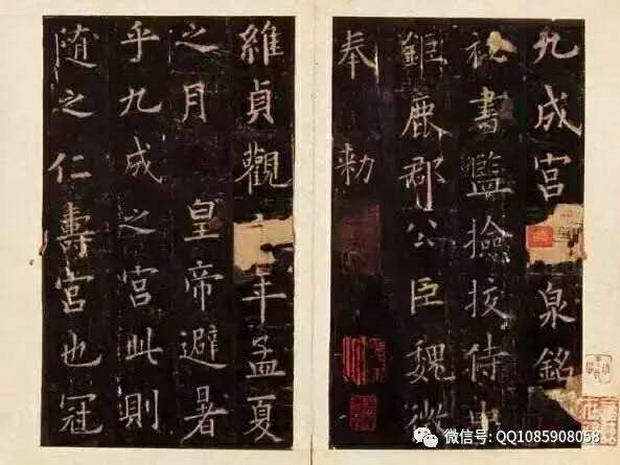 九成宫泉銘
秘書監撿挍侍中
鉅鹿郡公臣魏徵
奉勑
維貞觀年孟夏
之月皇帝避暑
乎九成之宫此則
随之仁壽宫也冠
微信号: QQ1085908058